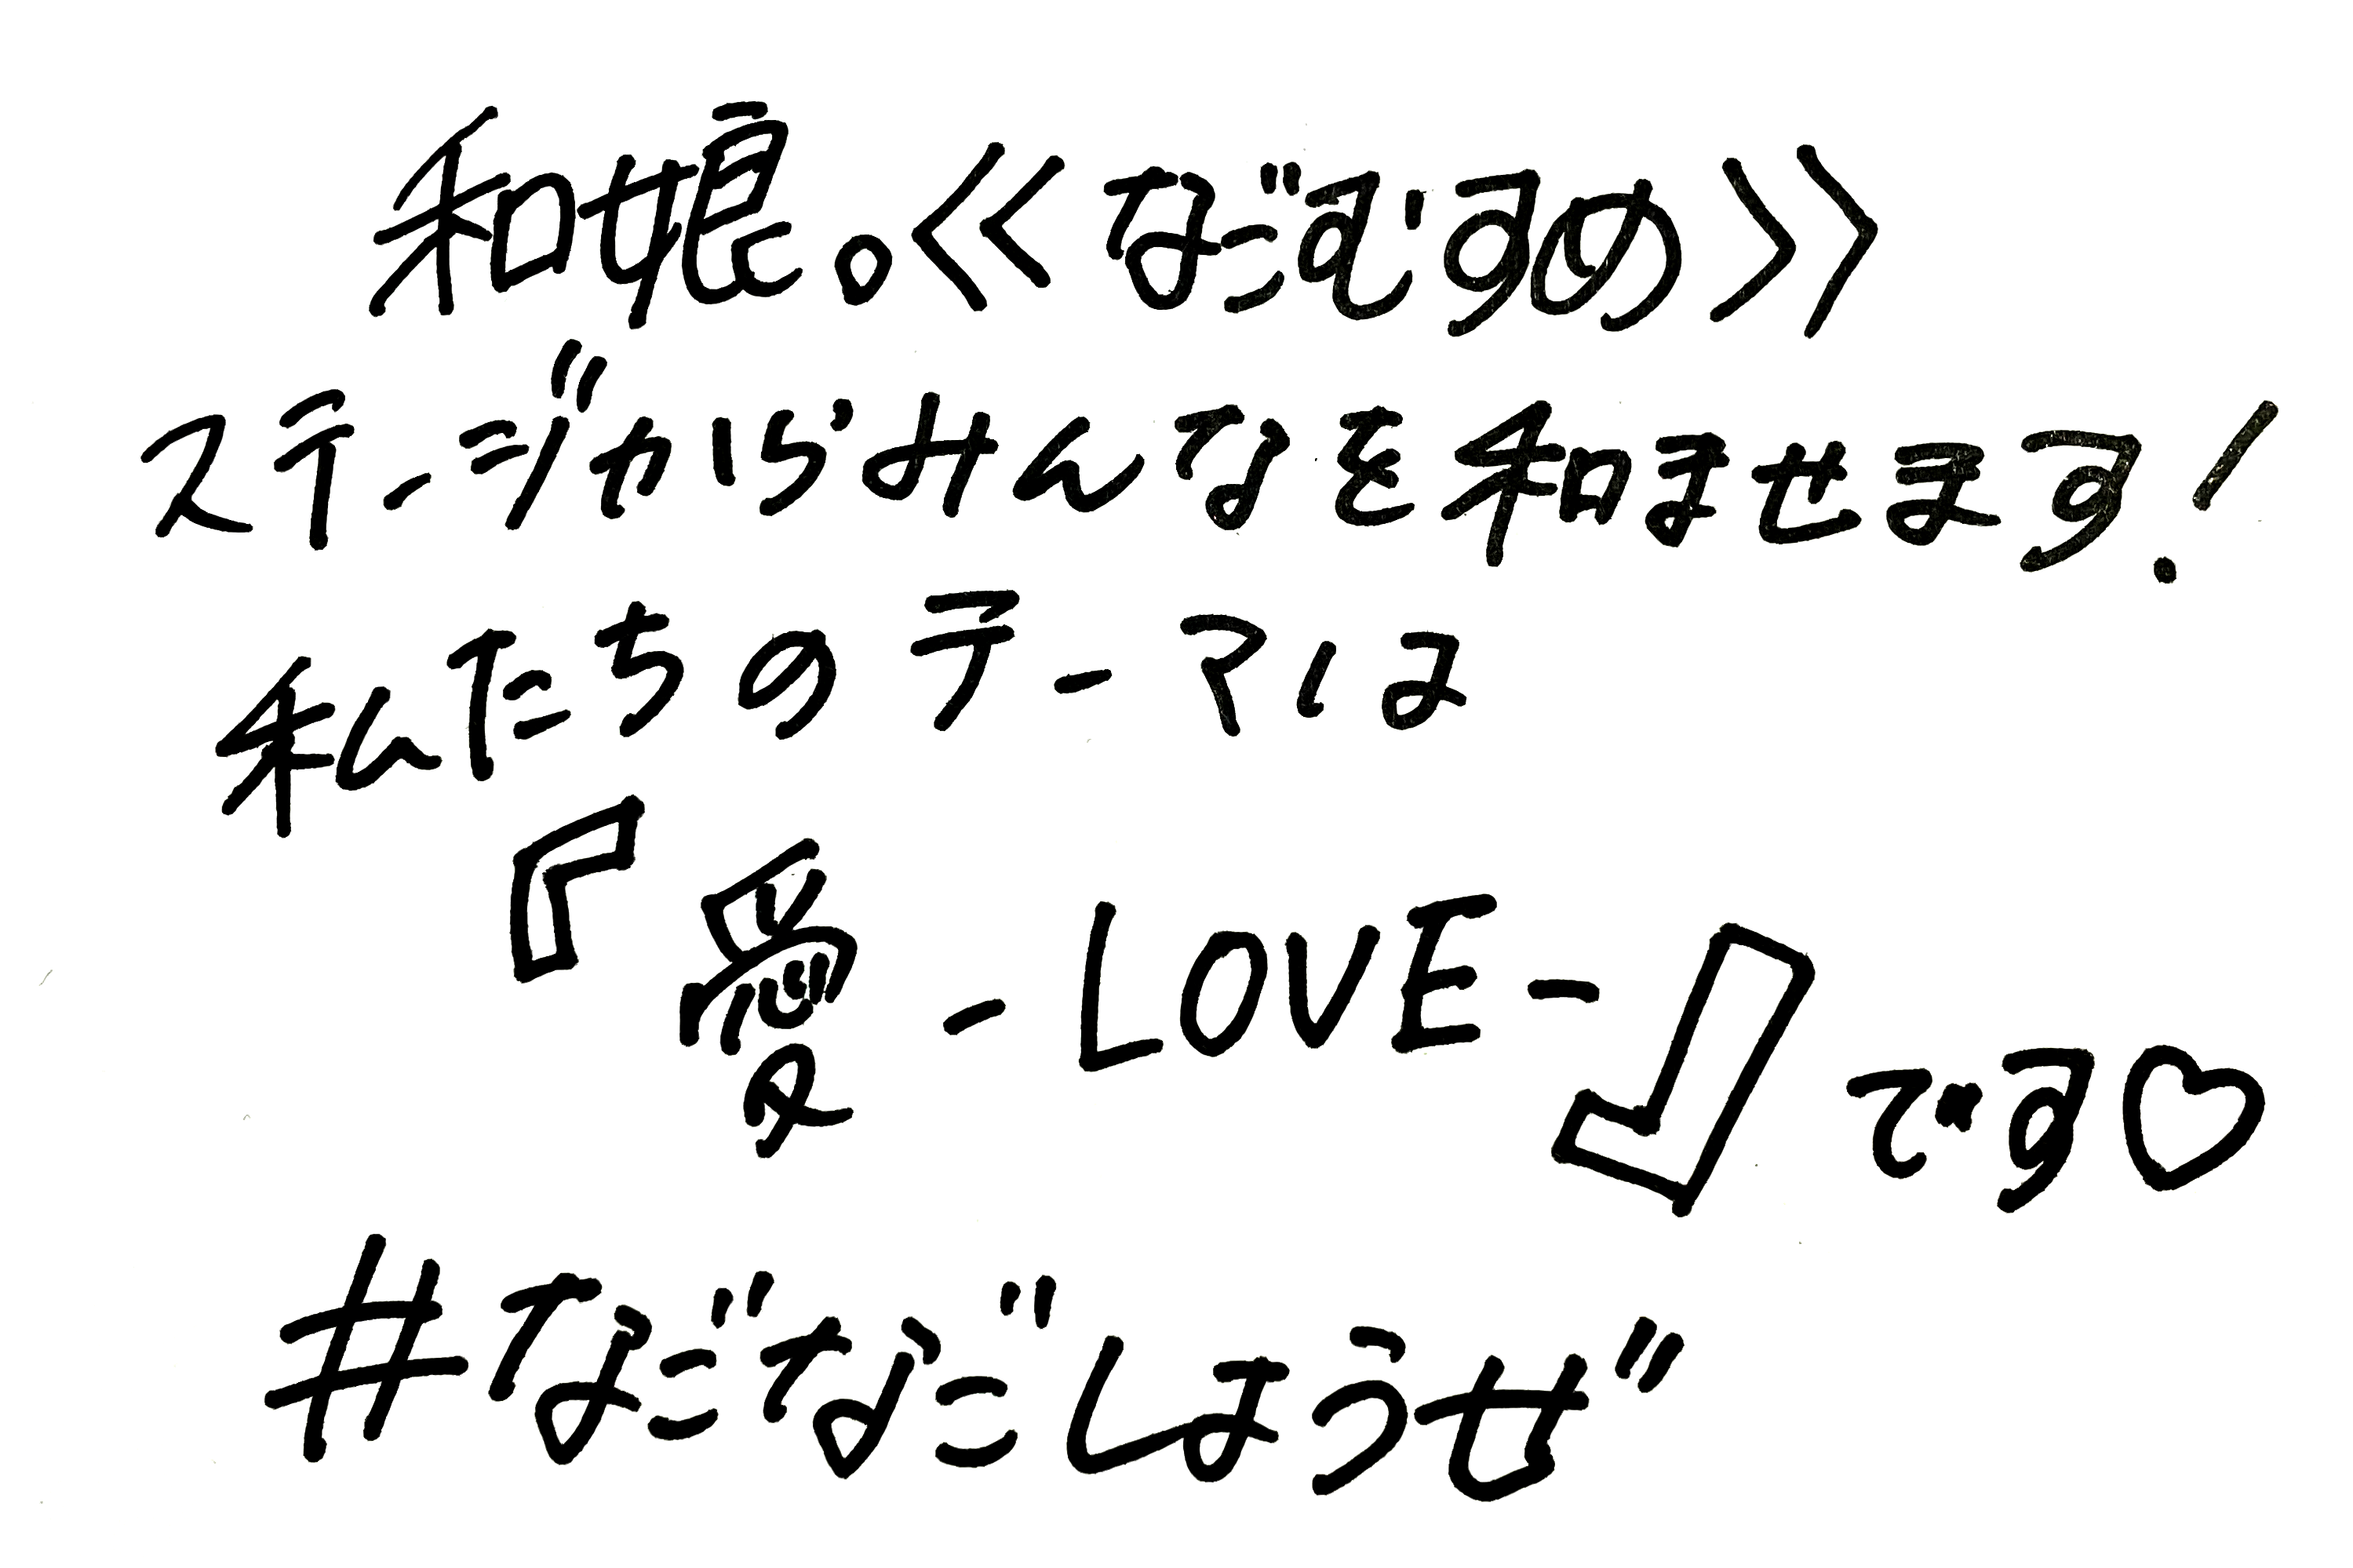 和娘。≪なごむすめ≫
ステージからみんなを和ませます！
私たちのテーマは
『愛-LOVE-』です♡
#なごなごしようぜ